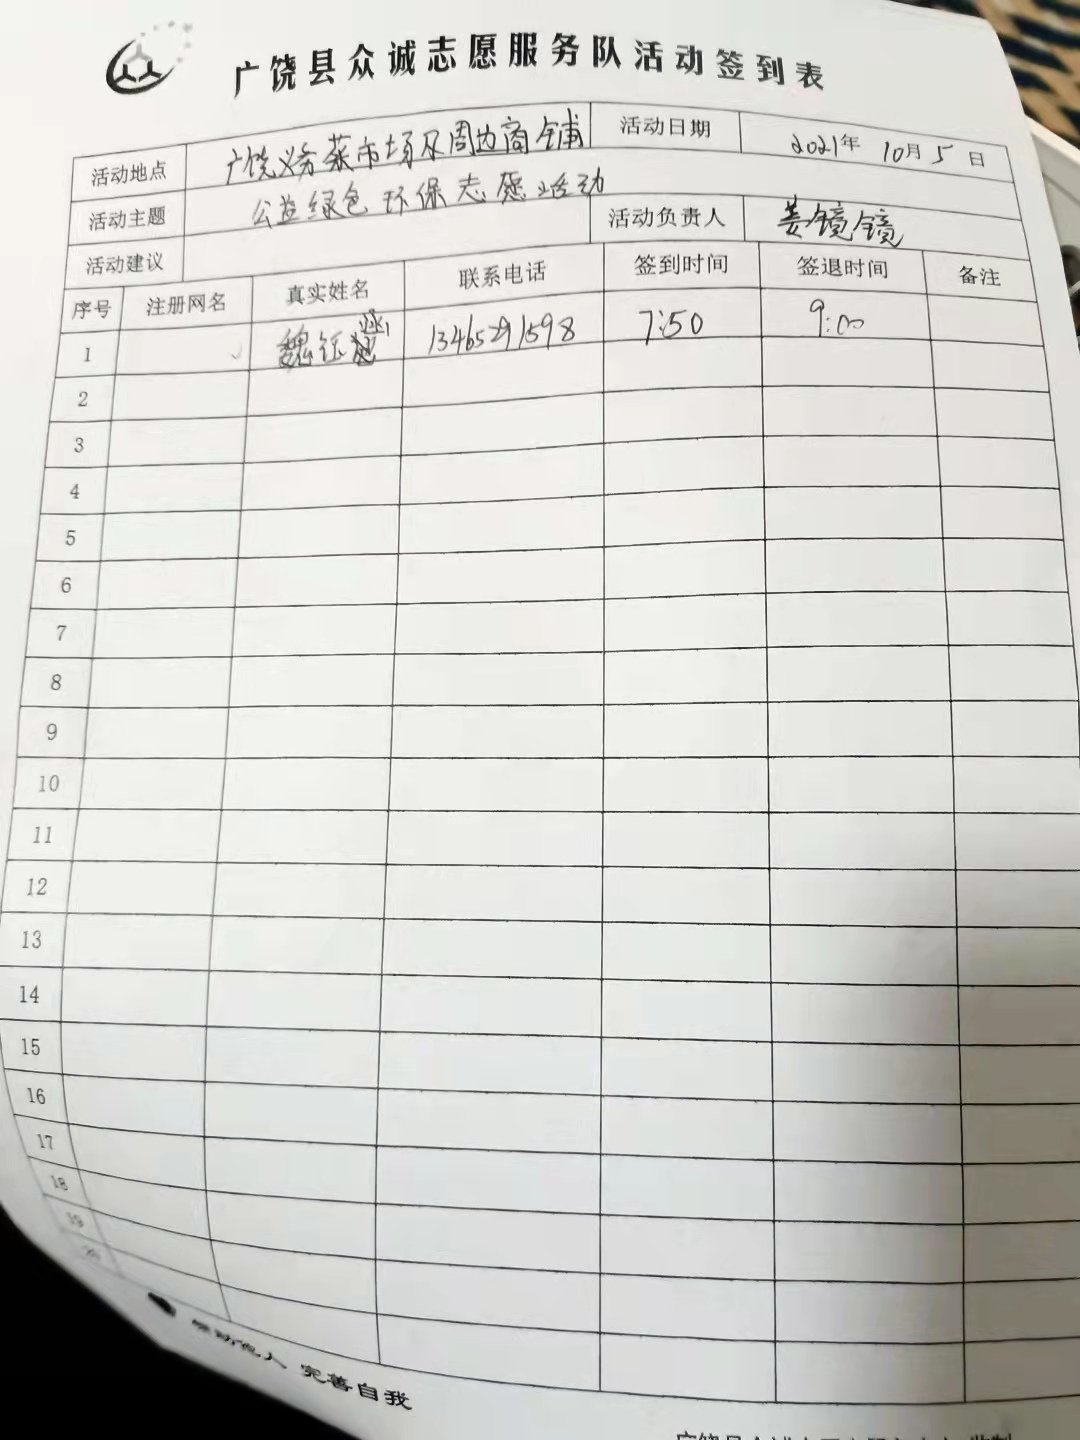 广饶县众诚志愿服务队活动签到表
活动地点 广饶义务菜市场及周边商铺 活动日期 2021年 10月 5 日
活动主题 公益绿色环保志愿活动
活动负责人 姜镜镜
活动建议
序号 注册网名 真实姓名 联系电话 签到时间 签退时间 备注
1 魏钰 13465291598 7:50 9:00
2
3
4
5
6
7
8
9
10
11
12
13
14
15
16
17
18
19
20
带动他人 完善自我